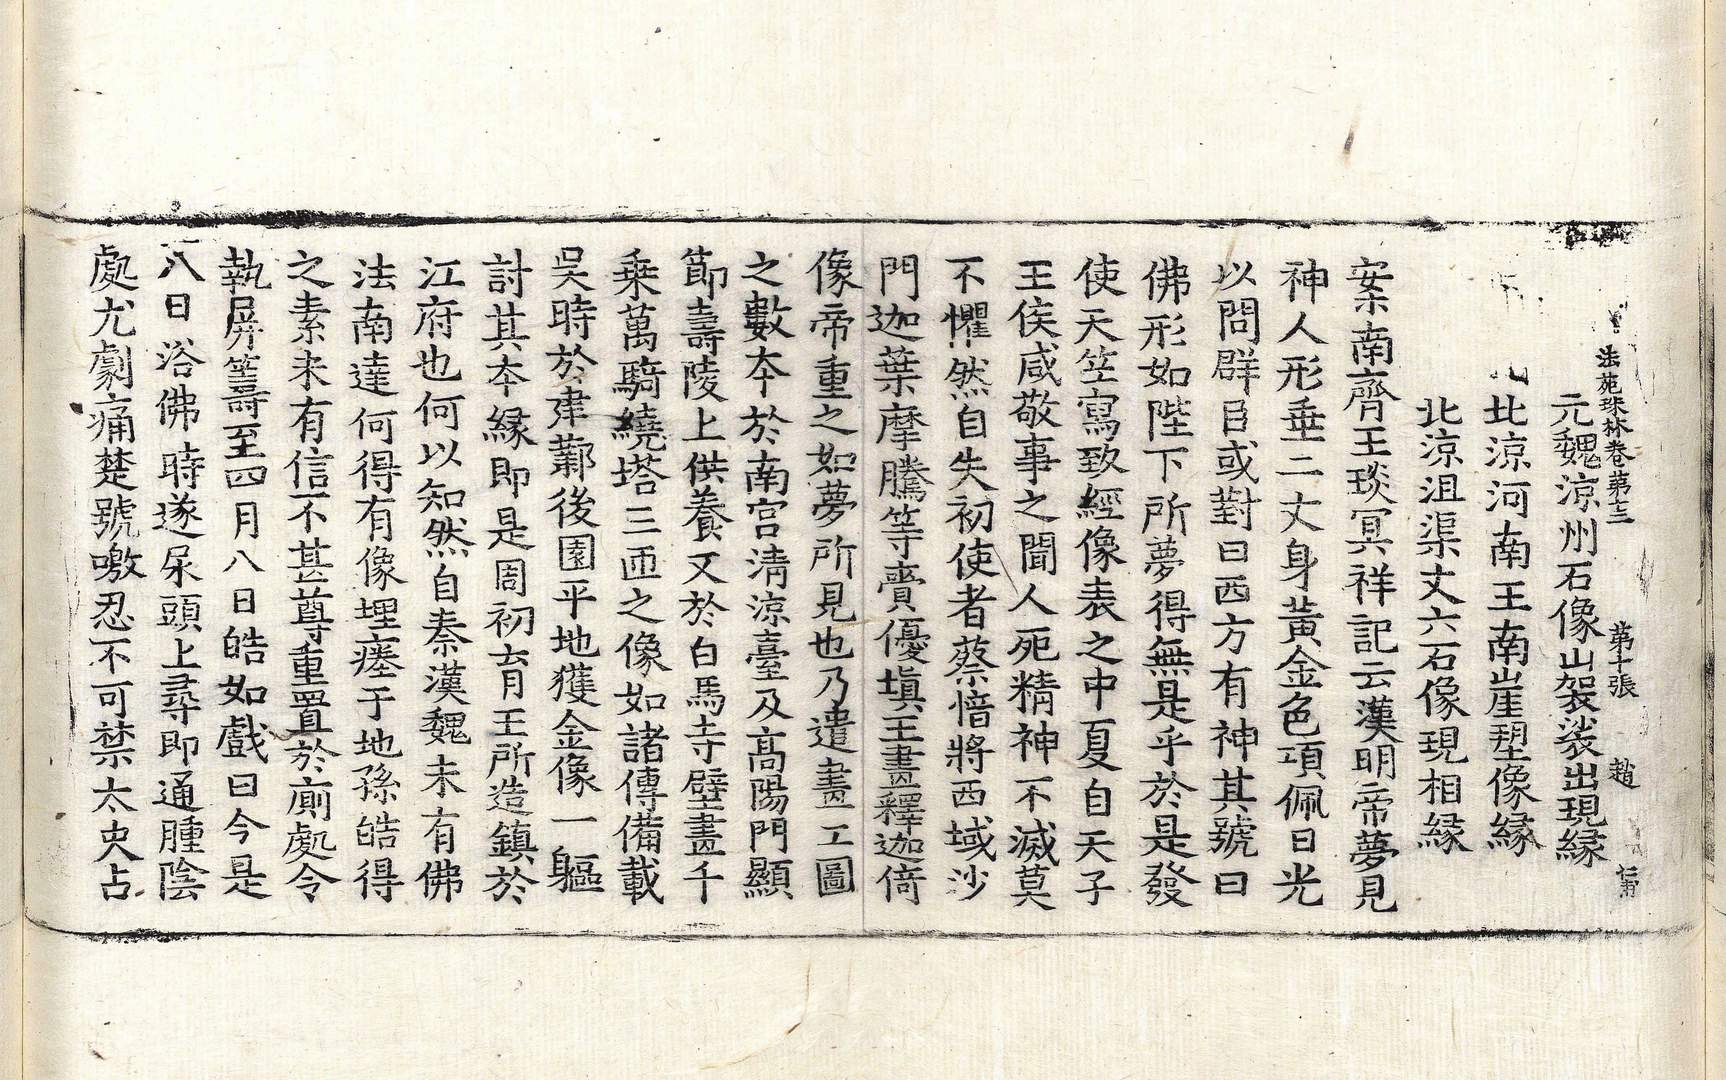 法苑珠林卷第十三 第十張 趙
元魏涼州石像山袈裟出現緣
北涼河南王南崖塑像緣
北涼沮渠丈六石像現相緣
案南齊王琰冥祥記云漢明帝夢見
神人形垂二丈身黃金色項佩日光
以問群臣或對曰西方有神其號曰
佛形如陛下所夢得無是乎於是發
使天竺寫致經像表之中夏自天子
王侯咸敬事之聞人死精神不滅莫
不懼然自失初使者蔡愔將西域沙
門迦葉摩騰等賫優填王畫釋迦倚
像帝重之如夢所見也乃遣畫工圖
之數本於南宮清涼臺及高陽門顯
節壽陵上供養又於白馬寺壁畫千
乘萬騎繞塔三匝之像如諸傳備載
吳時於建鄴後園平地獲金像一軀
討其本緣即是周初育王所造鎮於
江府也何以知然自秦漢魏未有佛
法南達何得有像埋瘞于地孫皓得
之素未有信不甚尊重置於廁處令
執屏籌至四月八日皓如戲曰今是
八日浴佛時遂尿頭上尋即通腫陰
處尤劇痛楚號噭忍不可禁太史占